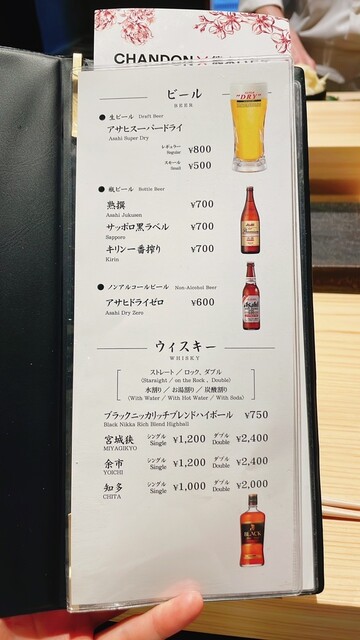 CHANDON X
ビール
BEER
● 生ビール Draft Beer
アサヒスーパードライ
Asahi Super Dry
レギュラー Regular ¥800
スモール Small ¥500
● 瓶ビール Bottle Beer
熟撰 ¥700
Asahi Jukusen
サッポロ黒ラベル ¥700
Sapporo
キリン一番搾り ¥700
Kirin
● ノンアルコールビール Non-Alcohol Beer
アサヒドライゼロ ¥600
Asahi Dry Zero
ウィスキー
WHISKY
ストレート / ロック, ダブル
(Staraight / on the Rock , Double)
水割り / お湯割り / 炭酸割り
(With Water / With Hot Water / With Soda)
ブラックニッカリッチブレンドハイボール ¥750
Black Nikka Rich Blend Highball
宮城狭 シングル Single ¥1,200 ダブル Double ¥2,400
MIYAGIKYO
余市 シングル Single ¥1,200 ダブル Double ¥2,400
YOICHI
知多 シングル Single ¥1,000 ダブル Double ¥2,000
CHITA
"DRY"
Asahi
BLACK